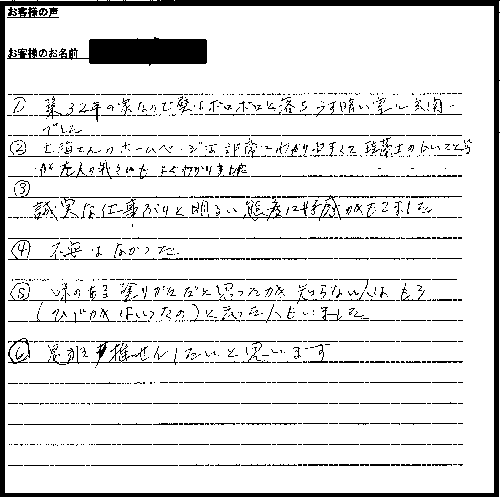 お客様の声
お客様のお名前
① 築32年の家なので壁はボロボロと落ちうす暗い室と玄関
でした
② さんのホームページは非常にわかりやすくて 珪藻土の
が 老人の我々にも よくわかりました
③
誠実な仕事ぶりと明るい態度に好感がもてました
④ 不安はなかった
⑤ 味のある塗りかただと思ったが 知らない人は もう
(ひびがはいったの)と言った人もいました
⑥ 是非推せんしたいと思います